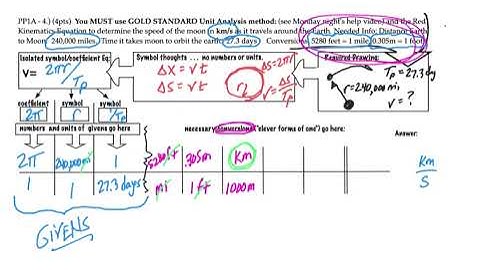 PP1A - 4.) (4pts) You MUST use GOLD STANDARD Unit Analysis method: (see Monday night's help video) and the Red
Kinematics Equation to determine the speed of the moon in km/s as it travels around the Earth. Needed Info: Distance Earth
to Moon 240,000 miles, Time it takes moon to orbit the earth 27.3 days Conversions 5280 feet = 1 mile, 0.305m = 1 foot
Isolated symbol/coefficient Eq:
V = 2πr/Tp
Symbol thoughts ... no numbers or units.
ΔX = v t
ΔS = v t
r
ΔS = 2πr
v = ΔS/Tp
Required Drawing:
Tp = 27.3 day
r = 240,000 mi
v = ?
coefficient symbol symbol
2π r /Tp
numbers and units of givens go here
necessary conversions ("clever forms of one") go here:
Answer:
2π 240,000 mi 1 5280 ft .305m Km Km
1 1 27.3 days mi 1 ft 1000m S
GIVENS